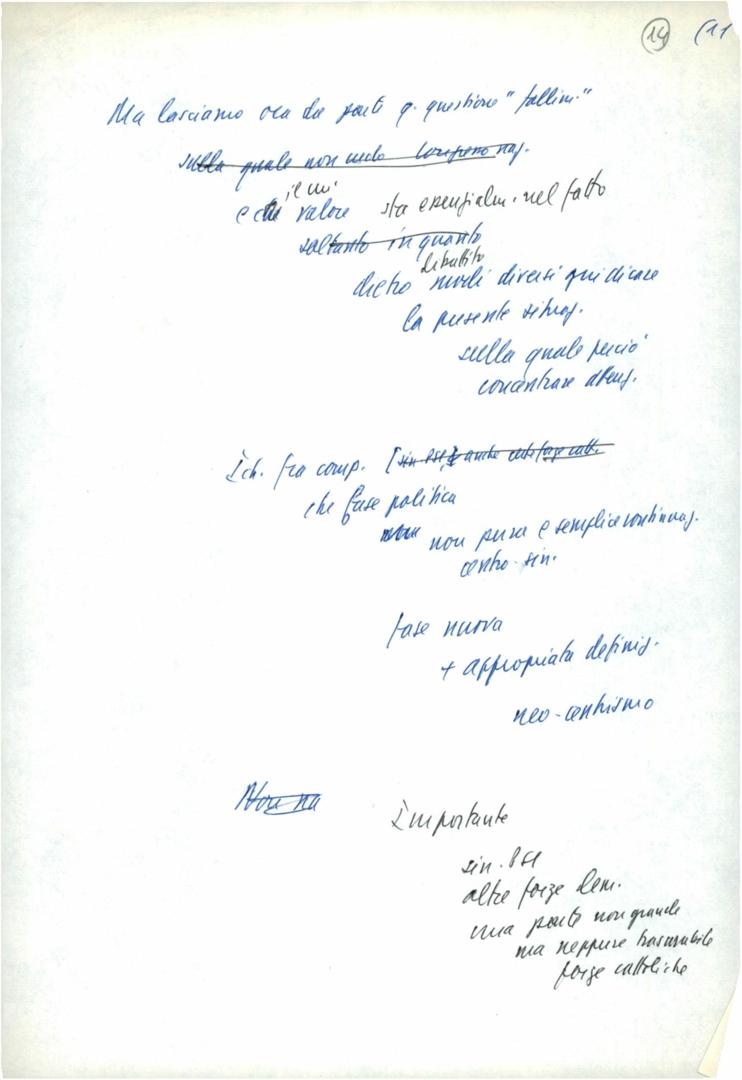 14 (11
Ma lasciamo ora da parte q. questione "fallim."
sulla quale non vedo
e che il cui valore sta essenzialm. nel fatto
soltanto in quanto
dibattito
dietro modi diversi giudicare
la presente situaz.
sulla quale perciò
concentrare attenz.
fra comp. [sin.
che fase politica
non pura e semplice continuaz.
centro-sin.
fase nuova
+ appropriata definiz.
neo-centrismo
Non
Importante
sin.
altre forze dem.
una parte non grande
ma neppure trascurabile
forze cattoliche